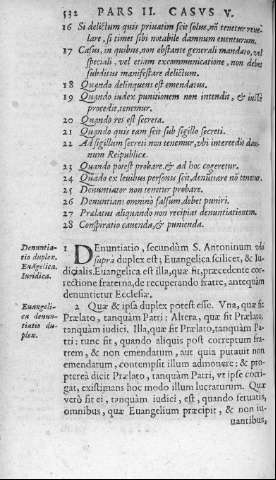 532 PARS II. CASVS V.
16 Si delictum quis priuatim scit solus, nō tenetur reue-
lare, si timet sibi notabile damnum euenturum.
17 Casus, in quibus, non obstante generali mandato, vel
speciali, vel etiam excommunicatione, non debet
subditus manifestare delictum.
18 Quando delinquens est emendatus.
19 Quando iudex punitionem non intendit, & iustè
procedit, tenemur.
20 Quando res est secreta.
21 Quando quis eam scit sub sigillo secreti.
22 Ad sigillum secreti non tenemur, vbi interedit dam-
num Reipublicæ.
23 Quando potest probare, & ad hoc cogeretur.
24 Quādo ex leuibus personis scit, denūtiare nō tenetur.
25 Denuntiator non tenetur probare.
26 Denuntians omninò falsum, debet puniri.
27 Prælatus aliquando non recipiat denuntiationem.
28 Conspiratio cauenda, & punienda.
Denuntia-
tio duplex.
Euāgelica.
Iuridica.
1 Denuntiatio, secundùm S. Antoninum vbi
suprà duplex est; Euangelica scilicet, & Iu-
dicialis. Euangelica est illa, quæ fit, præcedente cor-
rectione fraterna, de recuperando fratre, antequàm
denuncietur Ecclesiæ.
Euangeli-
ca denun-
tiatio du-
plex.
2 Quæ & ipsa duplex potest esse. Vna, quæ fit
Prælato, tanquàm Patri: Altera, quæ fit Prælato,
tanquàm iudici. Illa, quæ fit Prælato, tanquàm Pa-
tri: tunc fit, quando aliquis post correptum fra-
trem, & non emendatum, aut quia putauit non
emendatum, contempsit illum admonere; & pro-
ptereà dicit Prælato, tanquàm Patri, vt ipse corri-
gat, existimans hoc modo illum lucraturum. Quæ
verò fit ei, tanquàm iudici, est, quando seruatis,
omnibus, quæ Euangelium præcipit, & non iu-
uantibus,